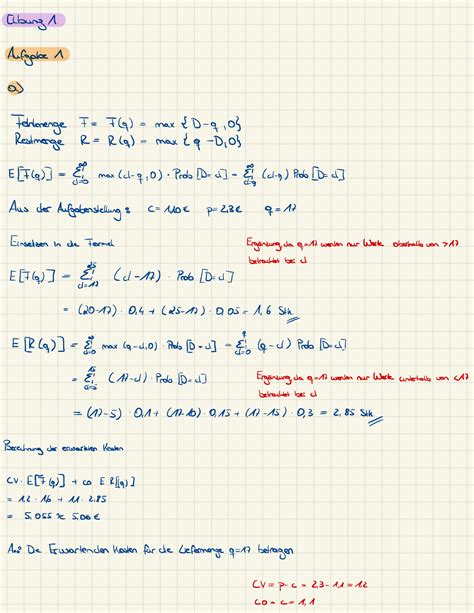 Übung 1
Aufgabe 1
a)
Fehlmenge F = F(q) = max {D-q, 0}
Restmenge R = R(q) = max {q-D, 0}
E[F(q)] = Σ_{d=0}^{∞} max(d-q, 0) · Prob[D=d] = Σ_{d=q}^{∞} (d-q) Prob[D=d]
Aus der Aufgabenstellung: c=1,10€ p=2,3€ q=17
Einsetzen in die Formel
Ergänzung da q=17 werden nur Werte oberhalb von >17
betrachtet bei d
E[F(q)] = Σ_{d=17}^{25} (d-17) · Prob[D=d]
= (20-17) · 0,4 + (25-17) · 0,05 = 1,6 Stk
E[R(q)] = Σ_{d=0}^{∞} max(q-d, 0) · Prob[D=d] = Σ_{d=0}^{q} (q-d) Prob[D=d]
= Σ_{d=5}^{15} (17-d) · Prob[D=d]
Ergänzung da q=17 werden nur Werte unterhalb von <17
betrachtet bei d
= (17-5) · 0,1 + (17-10) · 0,15 + (17-15) · 0,3 = 2,85 Stk
Berechnung der erwarteten Kosten
CV · E[F(q)] + co E R[(q)]
= 1,2 · 1,6 + 1,1 · 2,85
= 5,055 ≈ 5,06€
A: Die Erwartenden Kosten für die Liefermenge q=17 betragen
CV = p-c = 2,3-1,1 = 1,2
co = c = 1,1